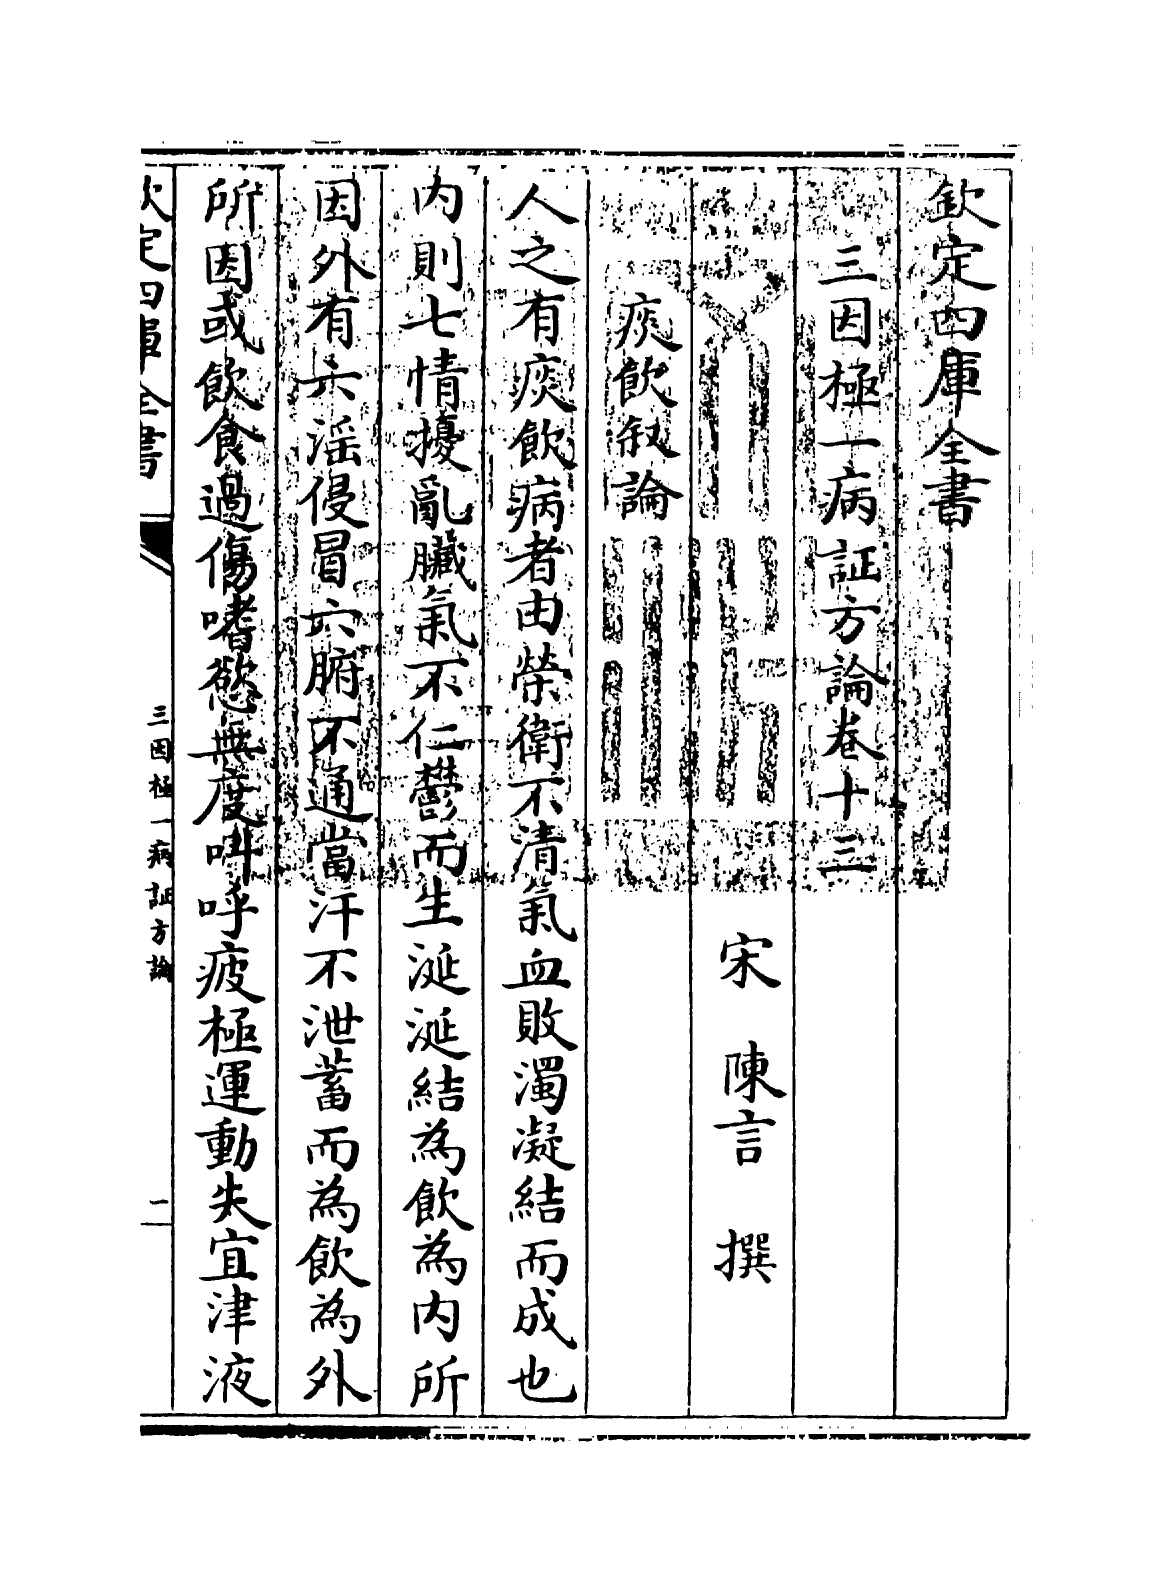 欽定四庫全書
三因極一病証方論卷十三
宋 陳言 撰
痰飲叙論
人之有痰飲病者由榮衛不清氣血敗濁凝結而成也
内則七情擾亂臟氣不仁鬱而生涎涎結為飲為内所
因外有六淫侵冒六腑不通當汗不泄蓄而為飲為外
所因或飲食過傷嗜慾無度呌呼疲極運動失宜津液
欽定四庫全書
三因極一病証方論
一